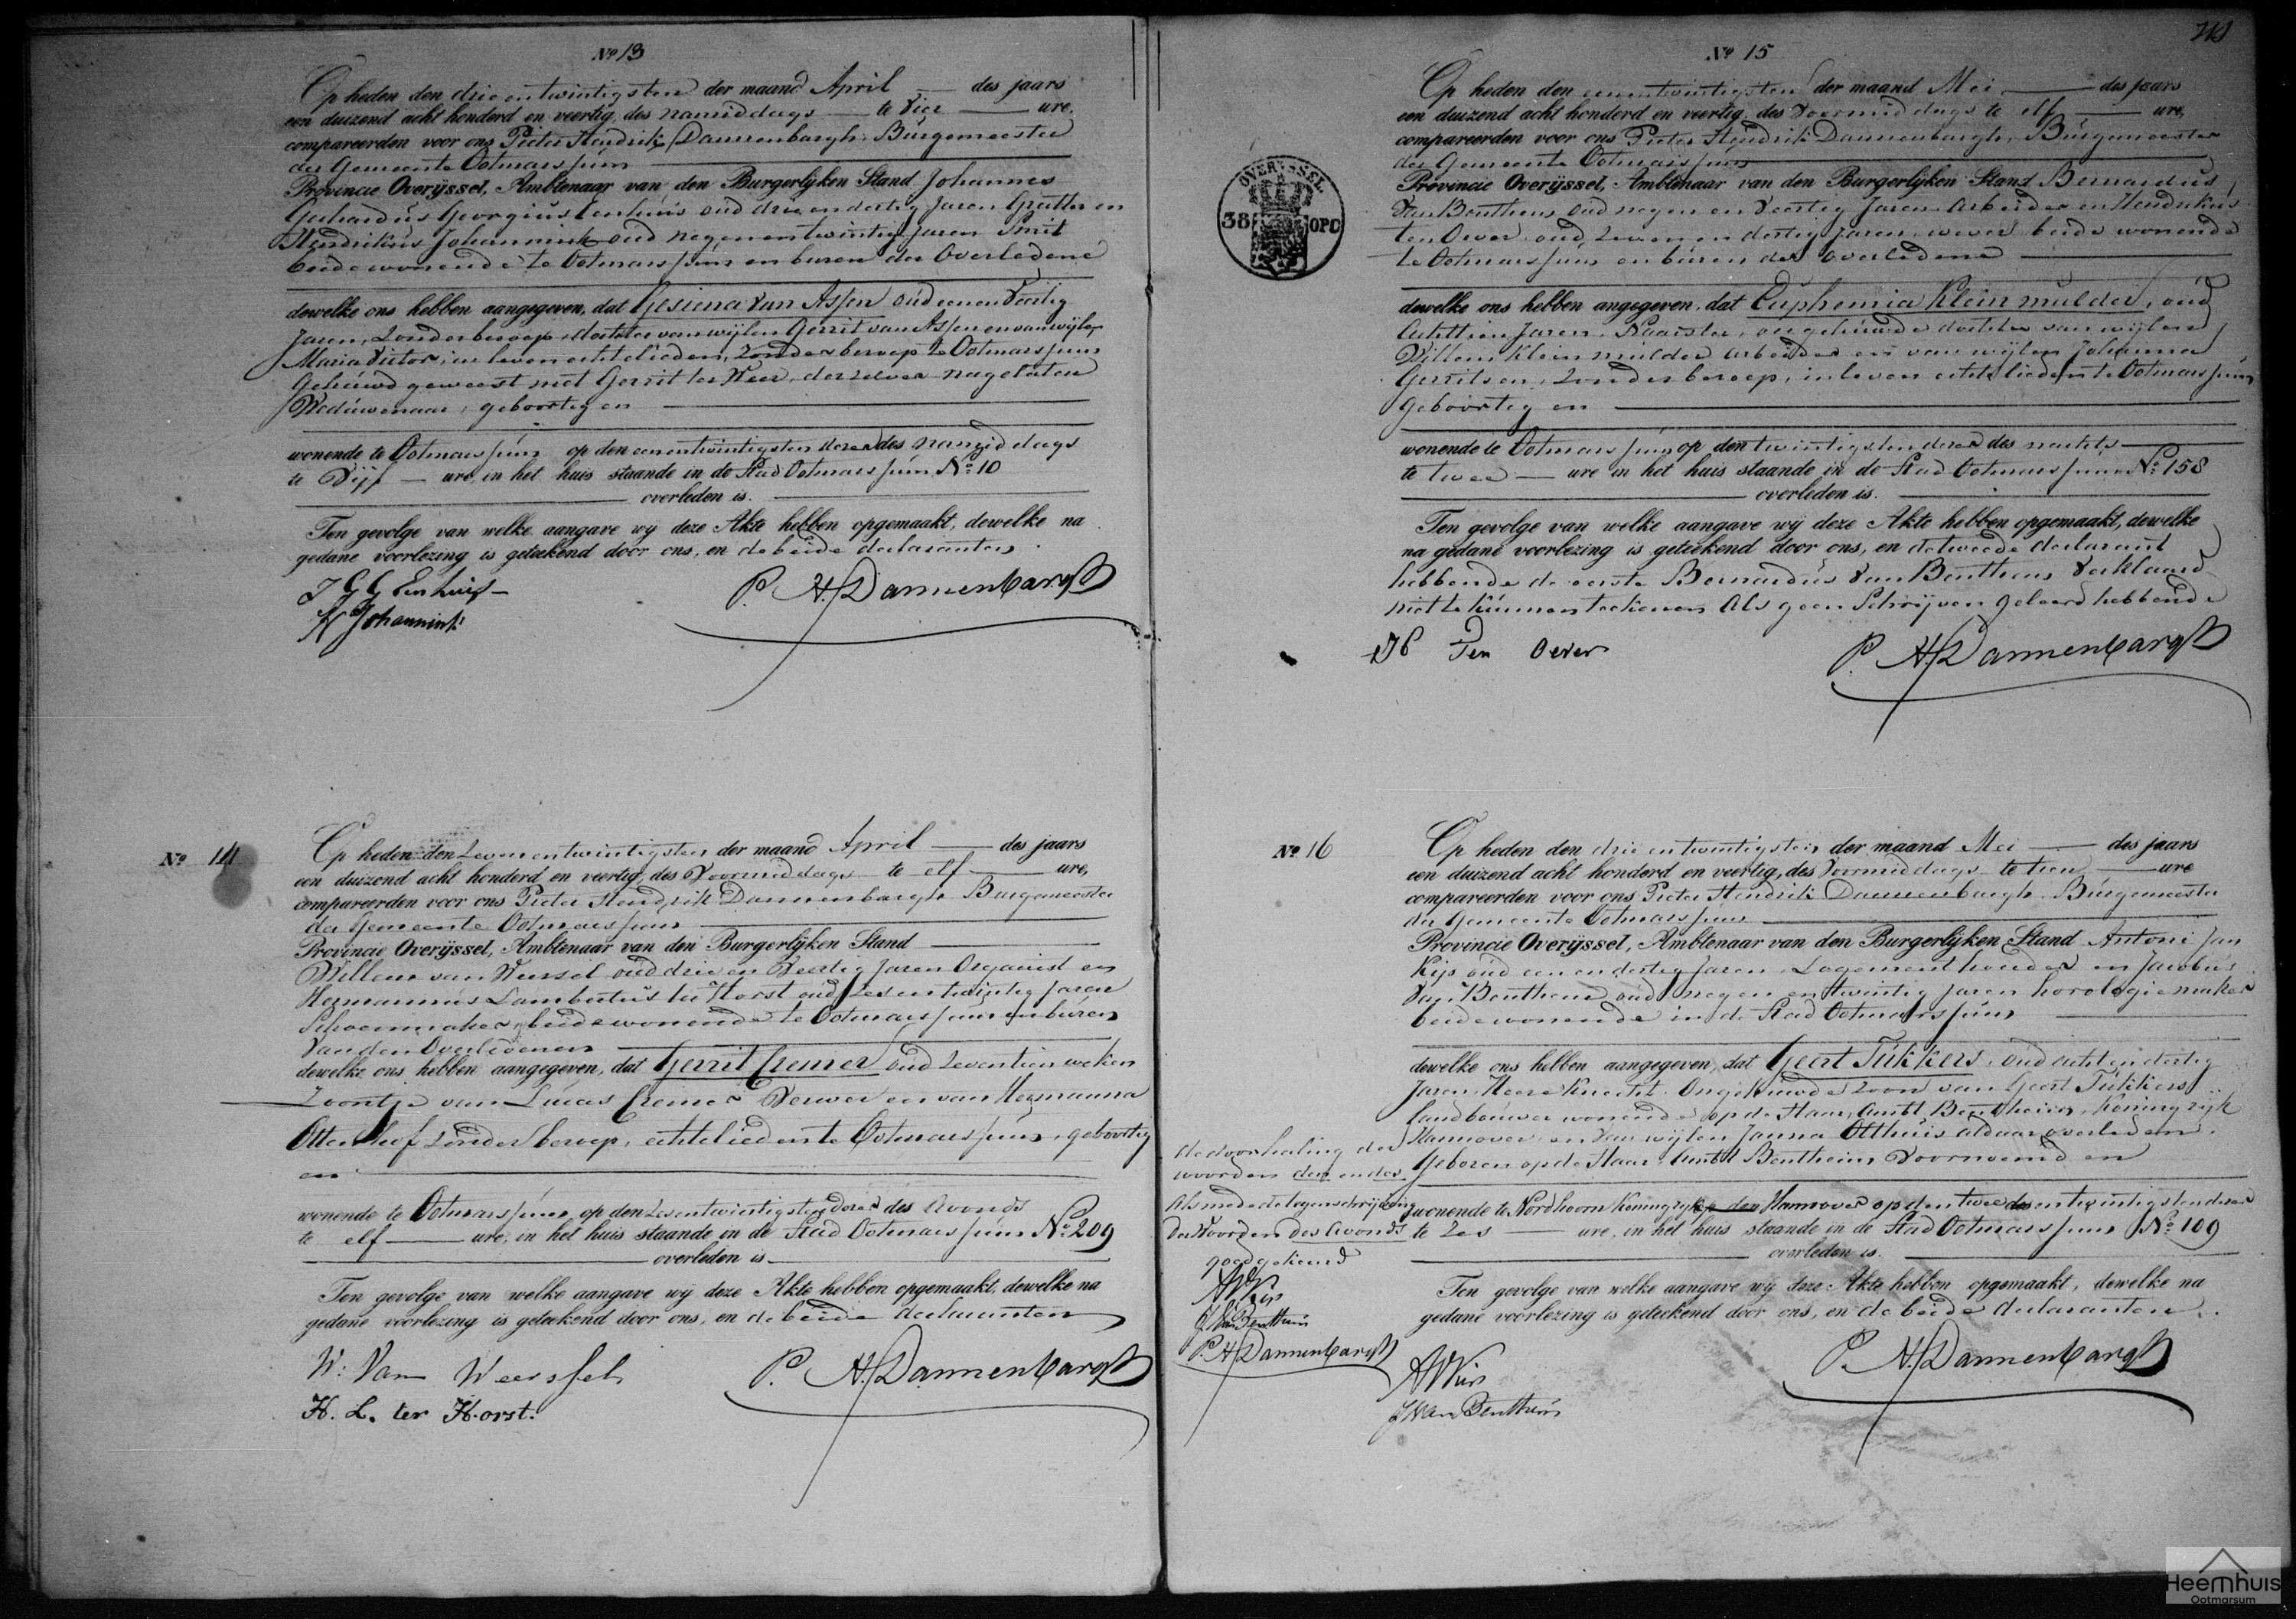 Nº 13
Op heden den drie en twintigsten der maand April des jaars
een duizend acht honderd en veertig, des namiddags te vier ure,
compareerden voor ons Pieter Hendrik Dannenbargh, Burgemeester
der Gemeente Ootmarssum
Provincie Overijssel, Ambtenaar van den Burgerlijken Stand Johannes
Gerhardus Georgius Eenhuis oud drie en dertig Jaren en
Hendrikus Johannink oud negen en twintig Jaren Smit
beide wonende te Ootmarssum en buren der Overledene
dewelke ons hebben aangegeven, dat Gesiena van Assen oud een en Veertig
Jaren, Zonder beroep dochter van wijlen Gerrit van Assen en van wijlen
Maria Victor, in leven echtelieden, Zonder beroep te Ootmarssum
Gehuwd geweest met Gerrit ter Weer, derzelver nagelaten
Weduwenaar, geboortig en
wonende te Ootmarssum op den een en twintigsten dezer des namiddags
te Vijf ure, in het huis staande in de Stad Ootmarssum Nº 10
overleden is.
Ten gevolge van welke aangave wij deze Akte hebben opgemaakt, dewelke na
gedane voorlezing is geteekend door ons, en de beide declaranten
J G G Eenhuis
H Johannink
P. H. Dannenbargh
Nº 14
Op heden den Zeven en twintigsten der maand April des jaars
een duizend acht honderd en veertig, des Voormiddags te elf ure,
compareerden voor ons Pieter Hendrik Dannenbargh Burgemeester
der Gemeente Ootmarssum
Provincie Overijssel, Ambtenaar van den Burgerlijken Stand
Willem van Weersel oud drie en Veertig Jaren Organist en
Hermannus Lambertus ter Horst oud Zes en twintig Jaren
Schoenmaker beide wonende te Ootmarssum en buren
Van den Overledenen
dewelke ons hebben aangegeven, dat Gerrit Cremer oud Zeventien weken
Zoontje van Lucas Cremer Verwer en van Hermanna
Ottenhof Zonder beroep, echtelieden te Ootmarssum, geboortig
en
wonende te Ootmarssum op den Zes en twintigsten dezer des Avonds
te elf ure, in het huis staande in de Stad Ootmarssum Nº 209
overleden is
Ten gevolge van welke aangave wij deze Akte hebben opgemaakt, dewelke na
gedane voorlezing is geteekend door ons, en de beide declaranten
W: Van Weerssel
H. L. ter Horst.
P. H. Dannenbargh
Nº 15
Op heden den een en twintigsten der maand Mei des jaars
een duizend acht honderd en veertig, des Voormiddags te elf ure,
compareerden voor ons Pieter Hendrik Dannenbargh, Burgemeester
der Gemeente Ootmarssum
Provincie Overijssel, Ambtenaar van den Burgerlijken Stand Bernardus
Van Benthem oud negen en Veertig Jaren Arbeider en Hendrikus
ten Oever oud Zeven en dertig Jaren, wever beide wonende
te Ootmarssum en buren der Overledene
OVERYSSEL
38 OPC
dewelke ons hebben angegeven, dat Euphemia Klein mulder, oud
Achttien Jaren, Naaister, ongehuwde dochter van wijlen
Willem Klein mulder Arbeider en van wijlen Johanna
Gerritsen, Zonder beroep, in leven echtelieden te Ootmarssum
Geboortig en
wonende te Ootmarssum op den twintigsten dezer des nachts
te twee ure in het huis staande in de Stad Ootmarssum Nº 158
overleden is.
Ten gevolge van welke aangave wij deze Akte hebben opgemaakt, dewelke
na gedane voorlezing is geteekend door ons, en de tweede declarant
hebbende de eerste Bernardus Van Benthem Verklaard
niet te kunnen teekenen Als geen Schrijven geleerd hebbende
H Ten Oever
P. H. Dannenbargh
Nº 16
Op heden den drie en twintigsten der maand Mei des jaars
een duizend acht honderd en veertig, des Voormiddags te tien ure
compareerden voor ons Pieter Hendrik Dannenbargh, Burgemeester
der Gemeente Ootmarssum
Provincie Overijssel, Ambtenaar van den Burgerlijken Stand Antoni Jan
Kip oud een en dertig Jaren, Logementhouder en Jacobus
Van Benthem oud negen en twintig Jaren horologiemaker
beide wonende in de Stad Ootmarssum
dewelke ons hebben aangegeven, dat Geert Tukkers, oud acht en dertig
Jaren Heere Knecht Ongehuwde Zoon van Geert Tukkers
Landbouwer wonende op de Haar, Ambt Bentheim, Koningrijk
Hannover en Van wijlen Janna Olthuis aldaar overleden.
Geboren op de Haar Ambt Bentheim Voornoemd en
wonende te Nordhoorn Koningrijk op den Hannover op den twee en twintigsten dezer
te Zes ure, in het huis staande in de Stad Ootmarssum Nº 109
overleden is.
Ten gevolge van welke aangave wij deze Akte hebben opgemaakt, dewelke na
gedane voorlezing is geteekend door ons, en de beide declaranten
de doorhaling der
woorden den en des
Als mede de tegenschrijving
der Woorden des Avonds
goedgekeurd
J Van Benthem
P. H. Dannenbargh
J Van Benthem
P. H. Dannenbargh
Heemhuis
Ootmarsum